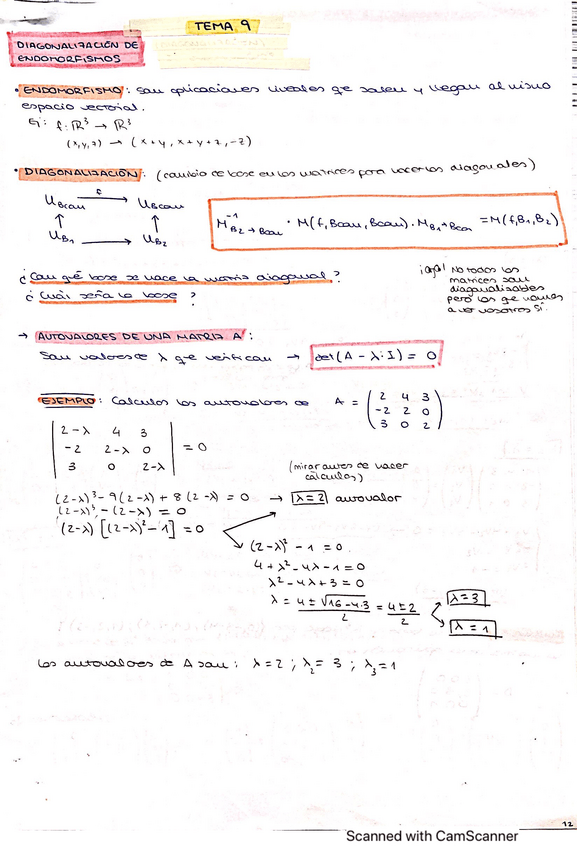 TEMA 9
DIAGONALIZACIÓN DE
ENDOMORFISMOS
• ENDOMORFISMO: Son aplicaciones lineales que salen y llegan al mismo
espacio vectorial.
Ej: f: ℝ³ → ℝ³
(x,y,z) → (x+y, x+y+z, -z)
• DIAGONALIZACIÓN: (cambio de base en las matrices para hacerlas diagonales)
U_Bcan →^f U_Bcan
↑ ↑
U_B1 → U_B2
M⁻¹_B2→Bcan · M(f,Bcan,Bcan) · M_B1→Bcan = M(f,B1,B2)
¿Con qué base se hace la matriz diagonal?
¿Cuál sería la base?
¡ojo! No todas las
matrices son
diagonalizables
pero las que vamos
a ver nosotros sí.
→ AUTOVALORES DE UNA MATRIZ A:
Son valores de λ que verifican → det(A - λ·I) = 0
EJEMPLO: Calculos los autovalores de A =
( 2 4 3
-2 2 0
3 0 2 )
| 2-λ 4 3 |
| -2 2-λ 0 | = 0
| 3 0 2-λ |
(mirar antes de hacer
cálculos)
(2-λ)³ - 9(2-λ) + 8(2-λ) = 0 → λ=2 autovalor
(2-λ)³ - (2-λ) = 0
(2-λ)[(2-λ)² - 1] = 0
(2-λ)² - 1 = 0
4 + λ² - 4λ - 1 = 0
λ² - 4λ + 3 = 0
λ = (4 ± √(16-4·3))/2 = (4±2)/2
λ=3
λ=1
Los autovalores de A son: λ=2 ; λ₂=3 ; λ₃=1
12
Scanned with CamScanner